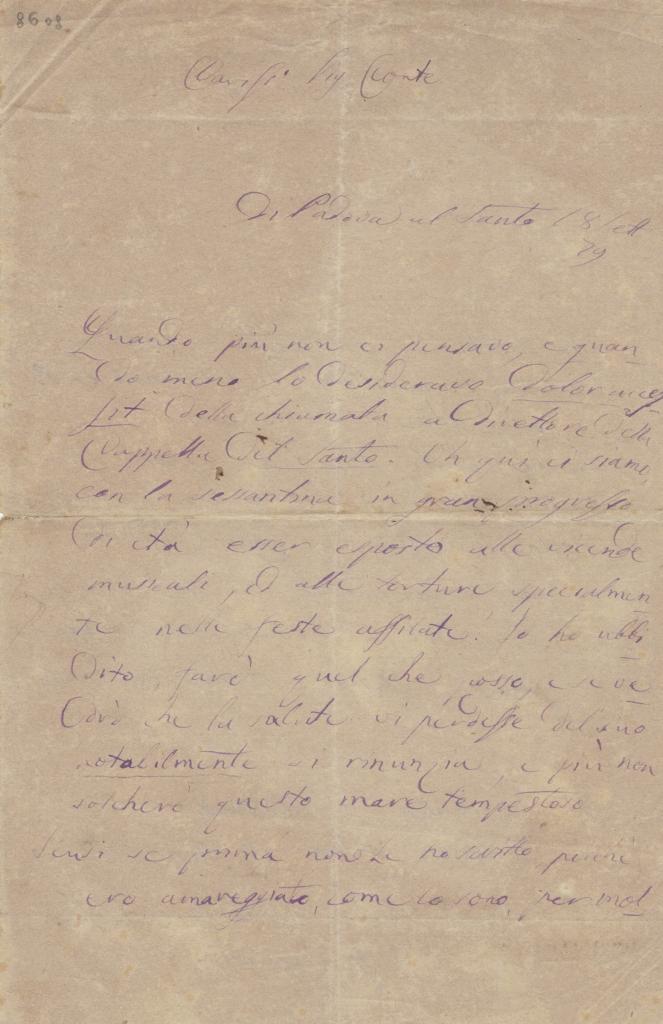 8608
Cariss: Sig Conte
Di Padova al Santo 18 Sett
79
Quando più non ci pensavo, e quan
do meno lo desideravo
della chiamata a Direttore della
Cappella del Santo. Oh quì ci siamo,
con la sessantina in gran progresso
di età esser esposto alle vicende
musicali, ed alle torture specialmen
te nelle feste affilate! Io ho ubbi
dito, farò quel che posso, e se ve
drò che la salute vi perdesse del suo
notabilmente si rinunzia, e più non
solcherò questo mare tempestoso
Scusi se prima non Le ho scritto, perchè
ero amareggiato, come lo sono, per mol